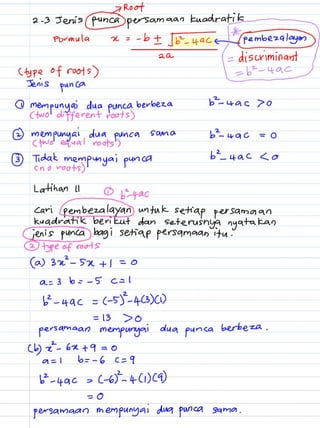 Root
2.3 Jenis punca persamaan kuadratik
Formula x = -b ± √b²-4ac / 2a
pembezalayan
= discriminant
= b²-4ac
(type of roots)
Jenis punca
① mempunyai dua punca berbeza b²-4ac > 0
(two different roots)
② mempunyai dua punca sama b²-4ac = 0
(two equal roots)
③ Tidak mempunyai punca b²-4ac < 0
(no roots)
Latihan 11 ① b²-4ac
Cari pembezalayan untuk setiap persamaan
kuadratik berikut dan seterusnya nyatakan
jenis punca bagi setiap persamaan itu.
② type of roots
(a) 3x² - 5x + 1 = 0
a = 3 b = -5 c = 1
b² - 4ac = (-5)² - 4(3)(1)
= 13 > 0
persamaan mempunyai dua punca berbeza.
(b) x² - 6x + 9 = 0
a = 1 b = -6 c = 9
b² - 4ac = (-6)² - 4(1)(9)
= 0
persamaan mempunyai dua punca sama.